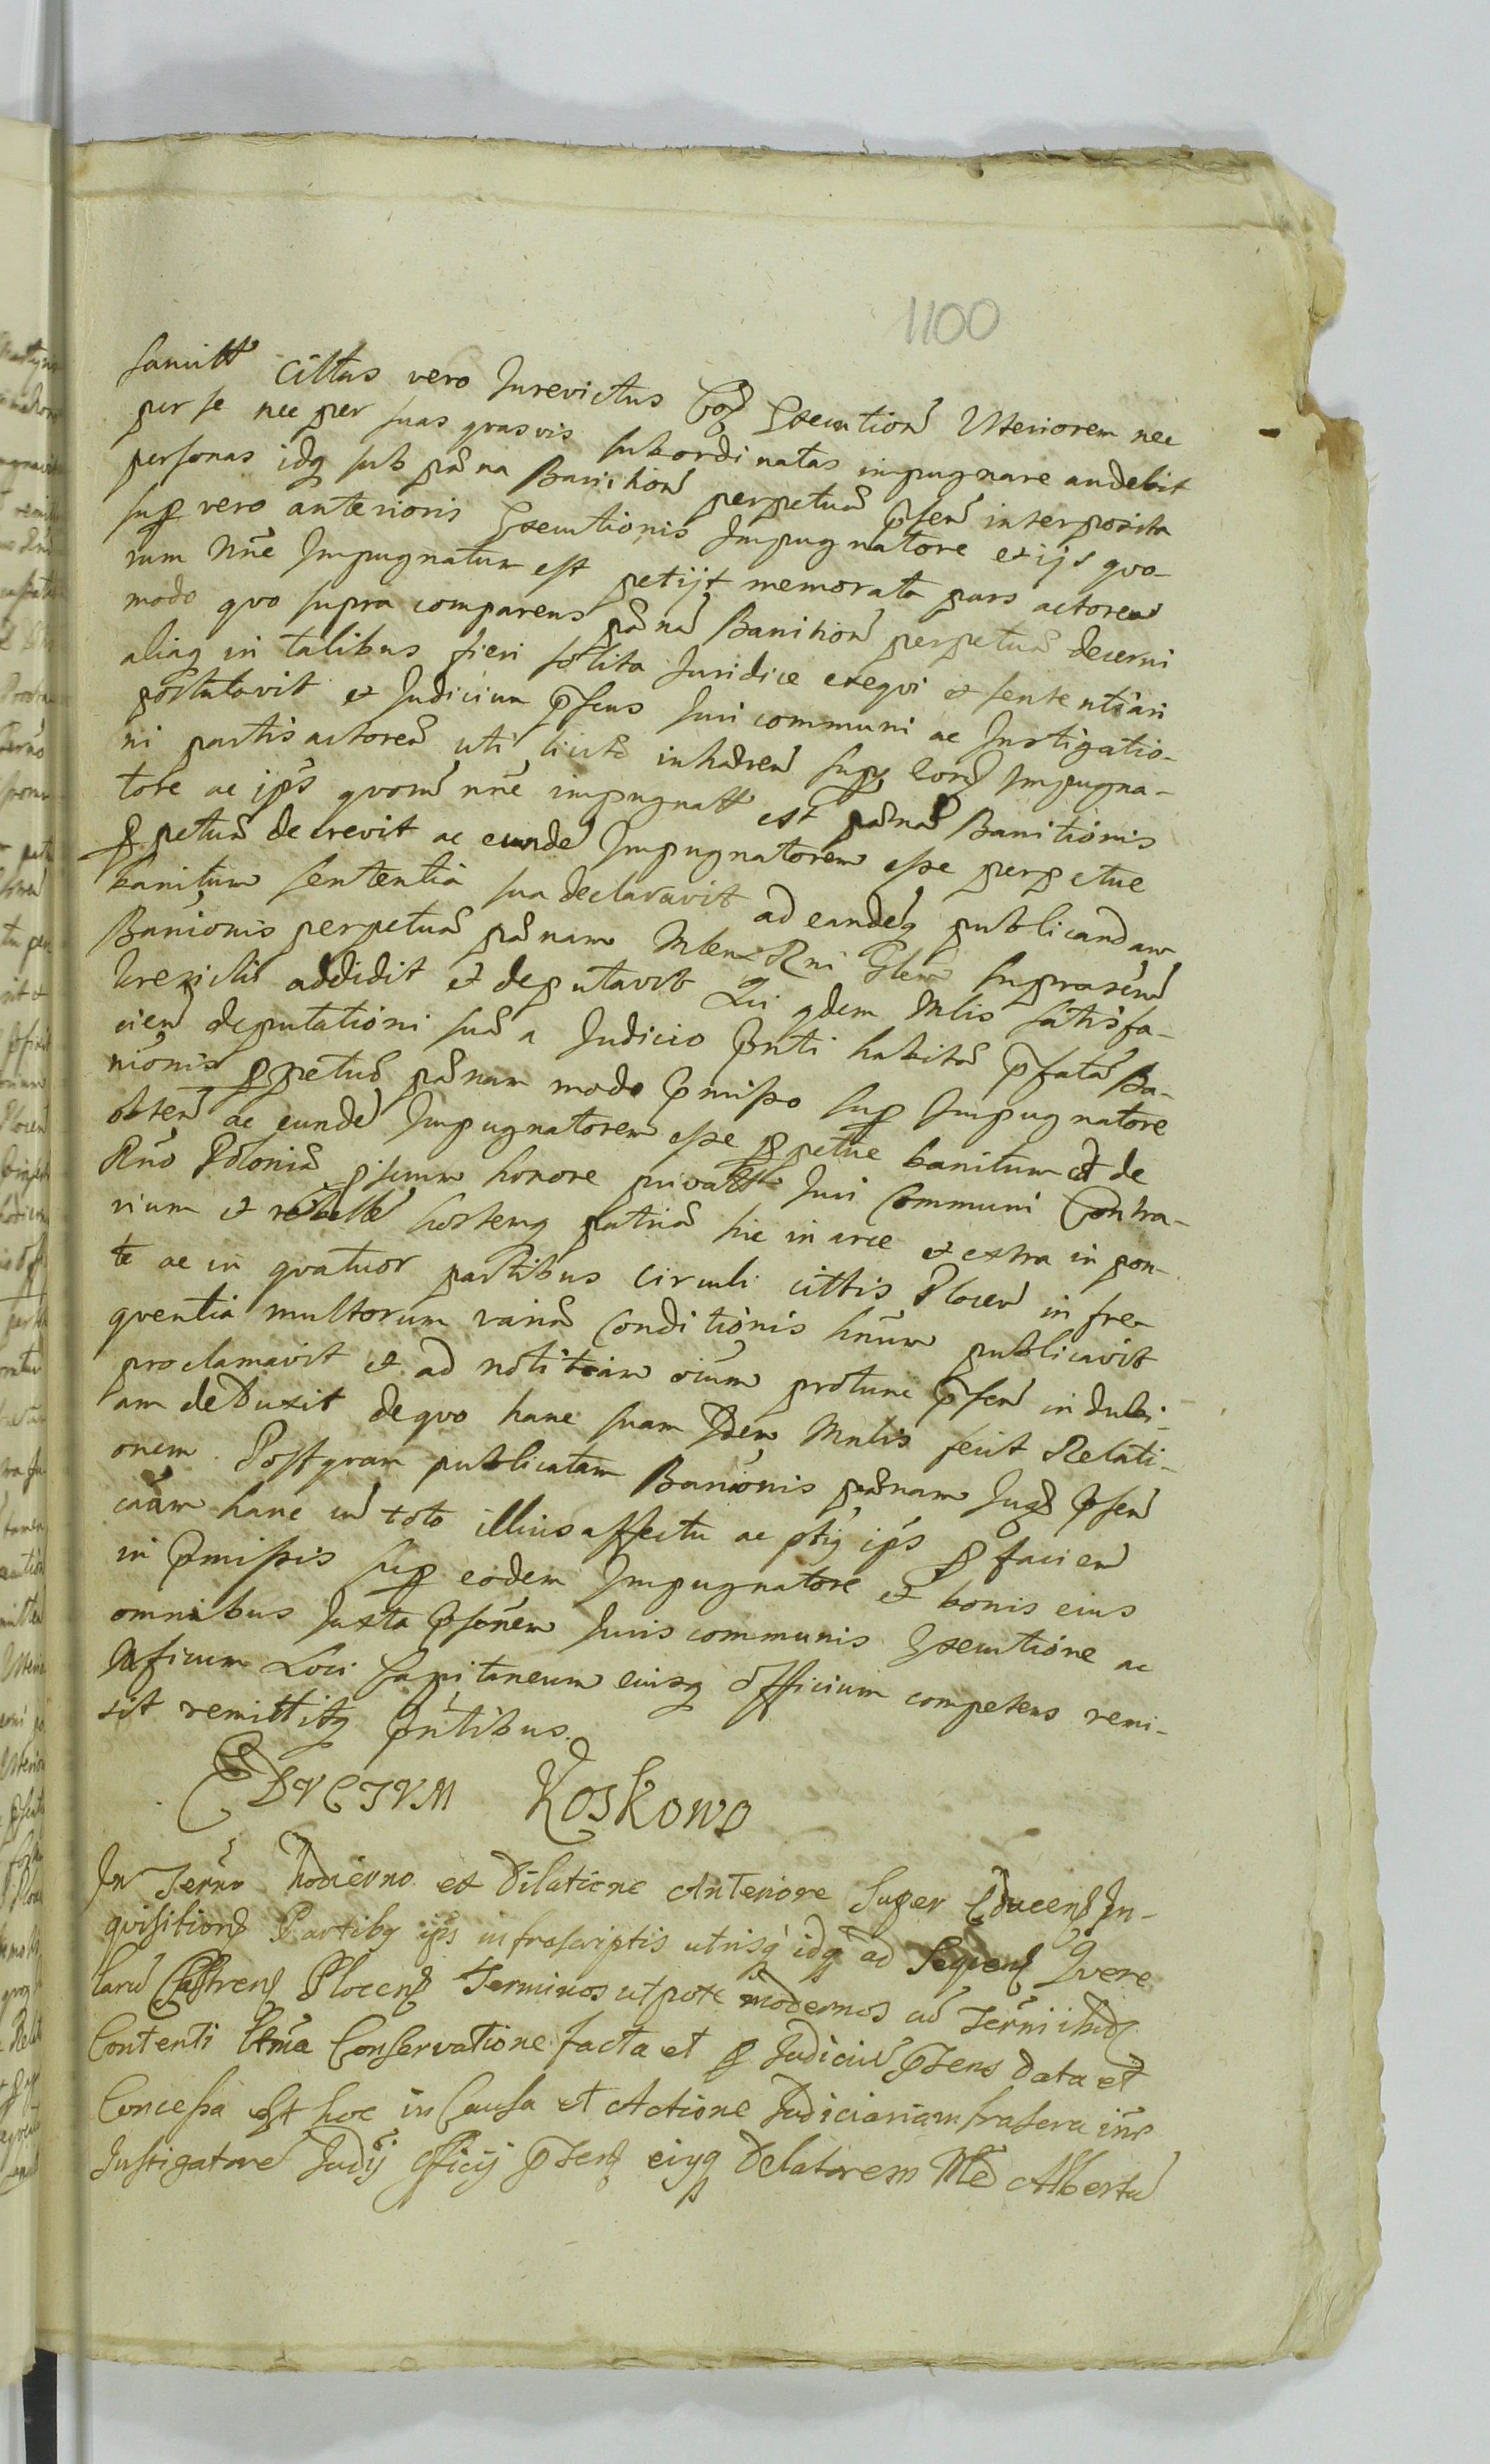 1100
Cittus vero Jurevictus Executionẽ Ulteriorem nec
per se nec per suas quasvis subordinatas impugnare audebit
personas idq sub pœna Banitionẽ perpetuæ p̃senẽ interposita
sup vero anterioris Executionis Impugnatore et ijs quo-
rum nñe Impugnatum est petijt memorata pars actorea
modo quo supra comparens pœnã Banitionẽ perpetuæ decerni
aliaq in talibus fieri solita Juridice exeqvi et sententiari
postulavit et Judicium p̃sens Juri communi ac Instigatio-
ni partis actoreæ uti inhærenẽ sup eorũ Impugna-
tore ac ips quorũ nñe impugnatt est pœnã Banitionis
ppetuæ decrevit ac eundẽ Impugnatorem esse perpetue
banitum sententia sua declaravit ad eandẽq publicandam
Banionis perpetuæ pœnam Mlem Rni Glem suprascriptũ
addidit et deputavit Qui qdem Mlis satisfa-
cienẽ deputationi suæ a Judicio p̃nti habitæ p̃fatã Ba-
nionis ppetuæ pœnam modo p̃misso sup Impugnatore
obtenẽ ac eundẽ Impugnatorem esse ppetue banitum et de
Rño Poloniæ honore privatt Juri Communi Contra-
rium et rebellẽ hostemq patriæ hic in arce et extra in pon-
te ac in quatuor partibus circuli cittis Plocen in fre-
quentia multorum variæ Conditionis hñum publicavit
proclamavit et ad notitiam oium protunc p̃senẽ indubi-
am deduxit de quo hanc suam Idem Mnlis fecit Relati-
onem. Post quam publicatam Banionis pœnam Judẽ p̃senẽ
cãm hanc in toto illius affectu ac ptiq ips p facienẽ
in p̃missis sup eodem Impugnatore et bonis eius
omnibus Juxta p̃sonem Juris communis Executione ac
Mficum Loci Capitaneum eiusq Officium competens remi-
sit remittitq p̃ntibus.
EDVCTVM Koskowo
In Termo hodierno ex Dilatione Anteriore Super Educenẽ In-
quisitionẽ Partibq ips infrascriptis utrisq idq ad Seqvenẽ Qvere
larũ Castrenẽ Plocenẽ Terminos utpote modernos cũ Termi
Contenti Conservatione facta et p Judiciũ p̃sens data et
Concessa est hoc in Causa et Actione Judiciaria
Instigatorẽ Judij Officij p̃senẽ eiusq Delatorem Albertũ